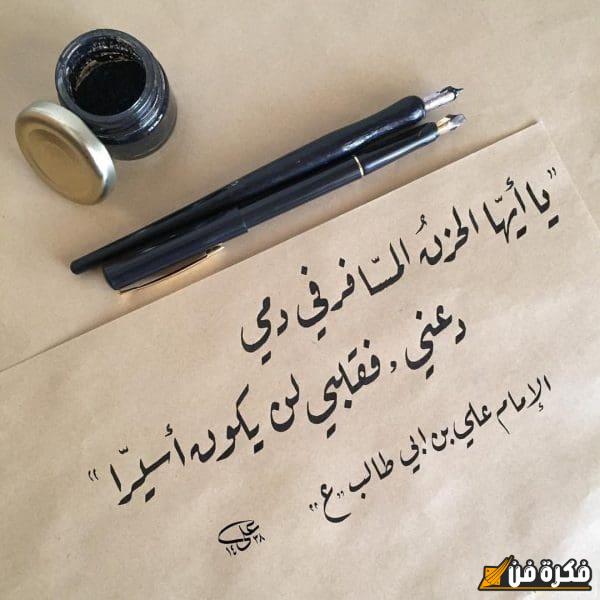 "يا أيّها الحزنُ المسّافر في دمي
دعني، فقلبي لن يكون أسيرًا"
الإمام علي بن ابي طالب "ع"
علي
١٤٣٨
فكرة فن